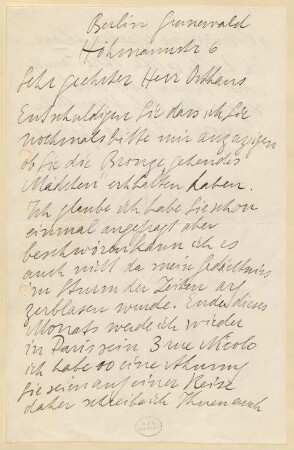 Berlin Grunewald
Höhmannstr 6
Sehr geehrter Herr Osthaus
Entschuldigen Sie dass ich Sie
nochmals bitte mir anzuzeigen
ob Sie die Bronze „gehendes
Mädchen" erhalten haben.
Ich glaube ich habe Sie schon
einmal angefragt aber
beschwören kann ich es
auch nicht da mein Gedächtniss
im Sturm der Zeiten arg
zerblasen wurde. Ende dieses
Monats werde ich wieder
in Paris sein 3 rue Nicolo
ich habe so eine Ahnung
Sie seien auf einer Reise
daher schreibe ich Ihnen auch